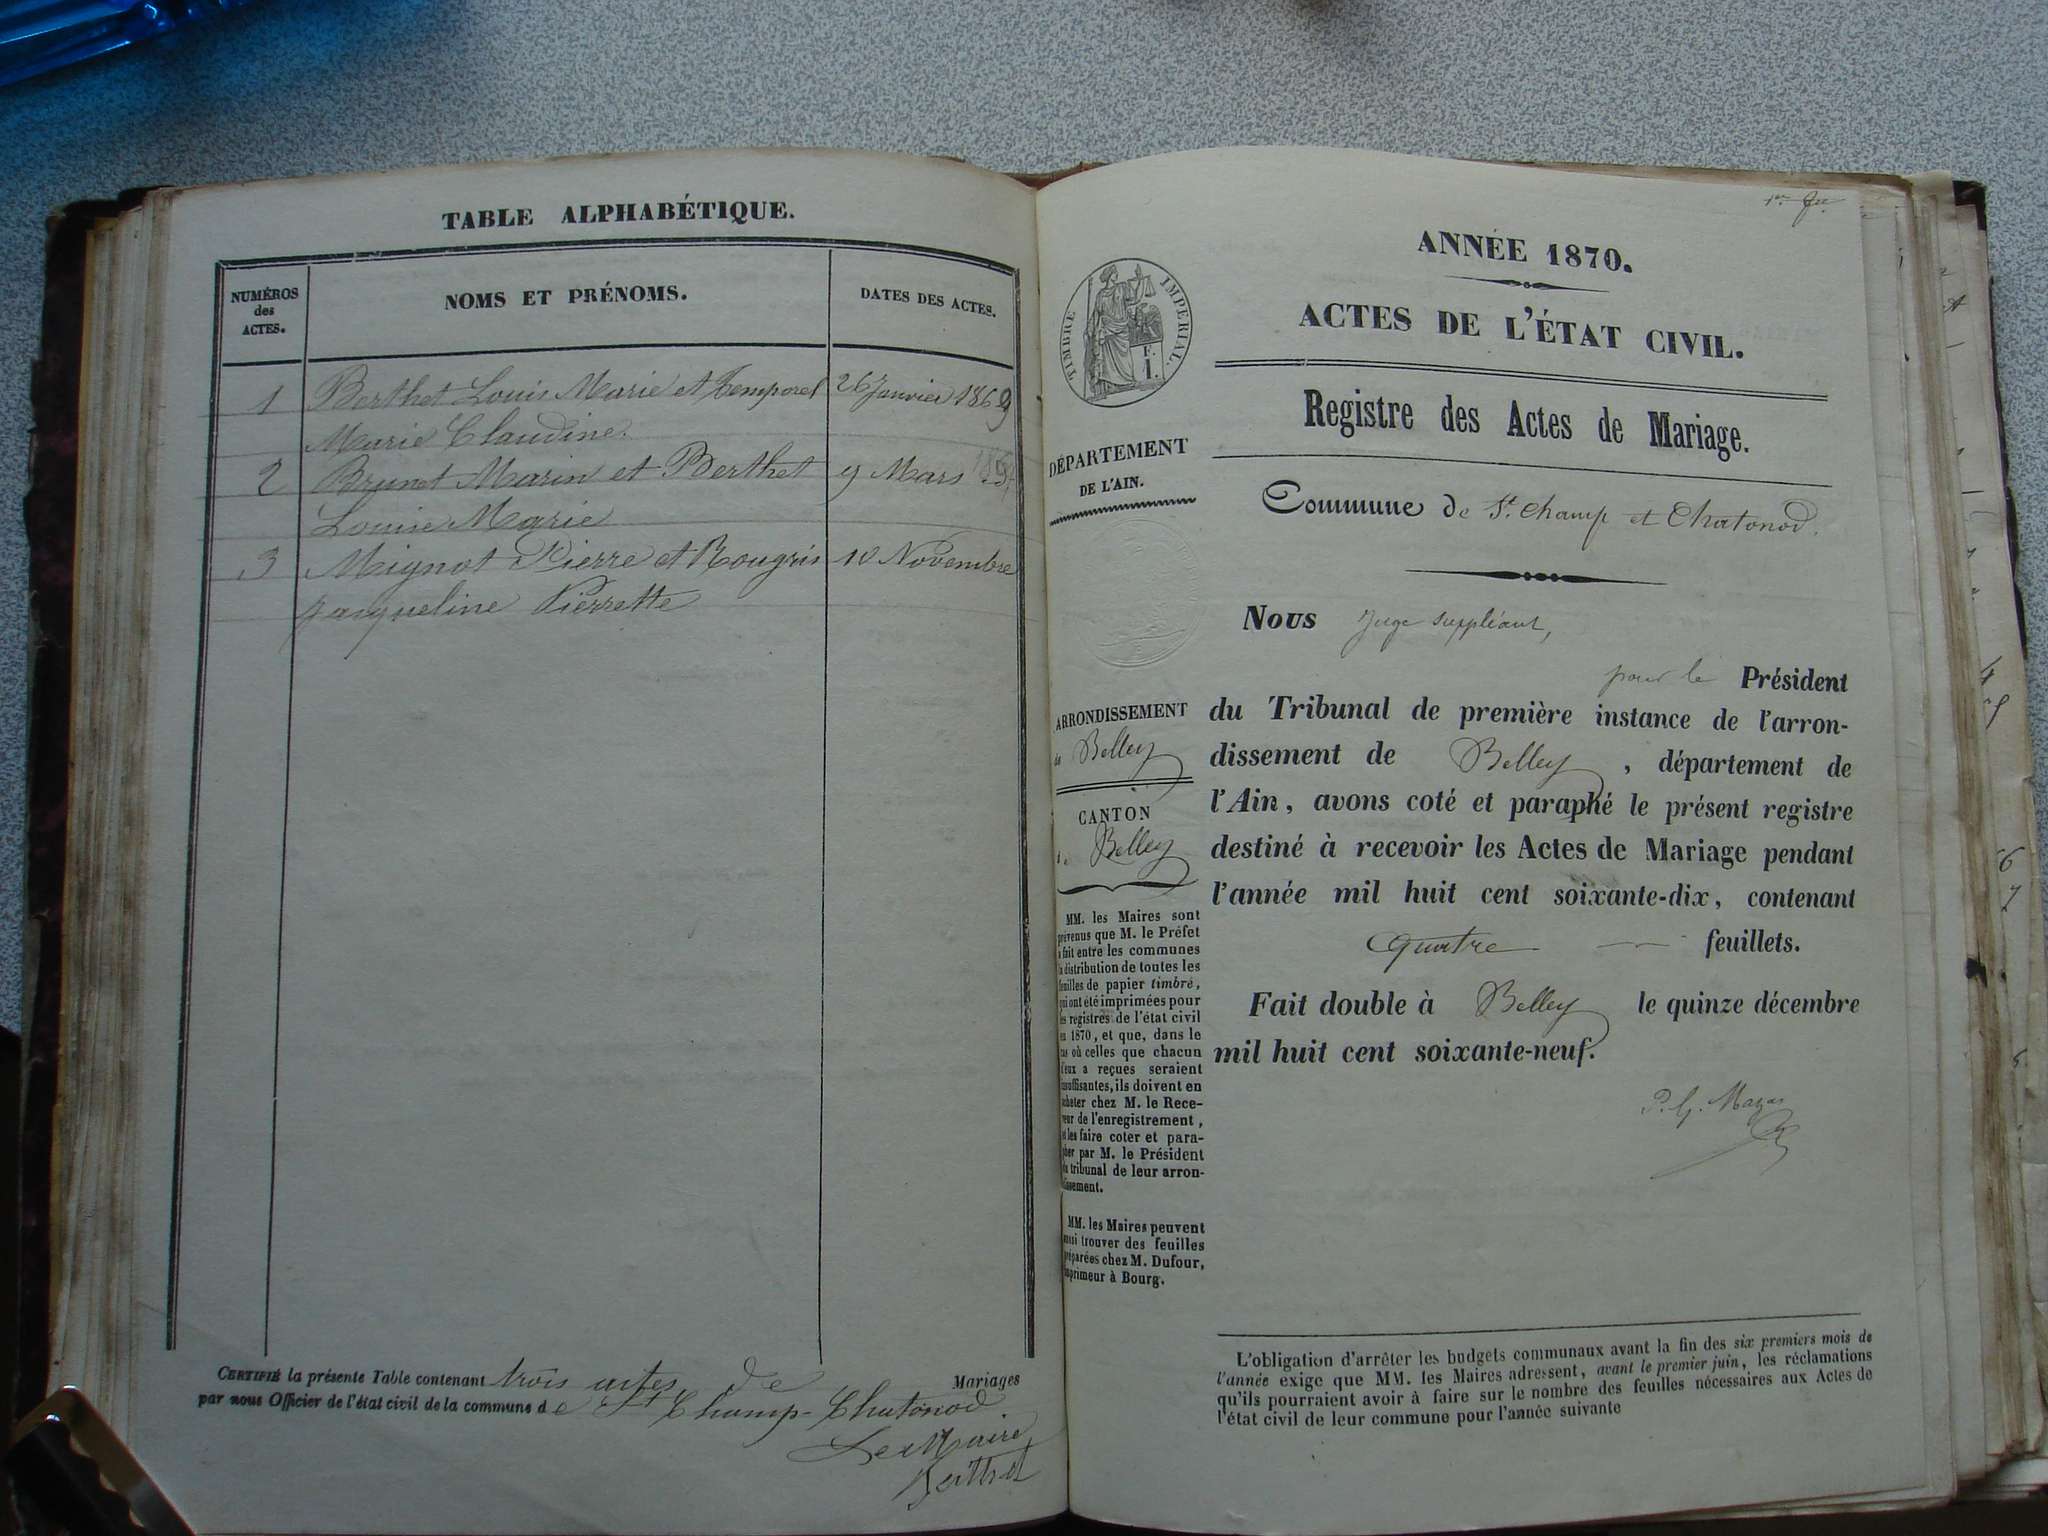 TABLE ALPHABÉTIQUE.
NUMÉROS des ACTES.
NOMS ET PRÉNOMS.
DATES DES ACTES.
1 Berthet Louis Marie et Temporel 26 Janvier 1869
Marie Claudine.
2 Brunet Marin et Berthet 9 Mars
Louise Marie
3 Mignot Pierre et Rougris 10 Novembre
Jacqueline Pierrette
CERTIFIÉ la présente Table contenant trois actes de Mariages
par nous Officier de l'état civil de la commune de St Champ-Chatonod
Le Maire
Berthet
1er
ANNÉE 1870.
ACTES DE L'ÉTAT CIVIL.
Registre des Actes de Mariage.
Commune de St. Champ et Chatonod.
TIMBRE IMPÉRIAL.
F.
I.
DÉPARTEMENT
DE L'AIN.
ARRONDISSEMENT
de Belley
CANTON
de Belley
MM. les Maires sont
prévenus que M. le Préfet
a fait entre les communes
la distribution de toutes les
feuilles de papier timbré,
qui ont été imprimées pour
les registres de l'état civil
en 1870, et que, dans le
cas où celles que chacun
d'eux a reçues seraient
insuffisantes, ils doivent en
acheter chez M. le Rece-
veur de l'enregistrement,
et les faire coter et para-
pher par M. le Président
du tribunal de leur arron-
dissement.
MM. les Maires peuvent
aussi trouver des feuilles
préparées chez M. Dufour,
imprimeur à Bourg.
Nous Juge suppléant,
pour le Président
du Tribunal de première instance de l'arron-
dissement de Belley, département de
l'Ain, avons coté et paraphé le présent registre
destiné à recevoir les Actes de Mariage pendant
l'année mil huit cent soixante-dix, contenant
quatre feuillets.
Fait double à Belley le quinze décembre
mil huit cent soixante-neuf.
P. G. Mazas
L'obligation d'arrêter les budgets communaux avant la fin des six premiers mois de
l'année exige que MM. les Maires adressent, avant le premier juin, les réclamations
qu'ils pourraient avoir à faire sur le nombre des feuilles nécessaires aux Actes de
l'état civil de leur commune pour l'année suivante